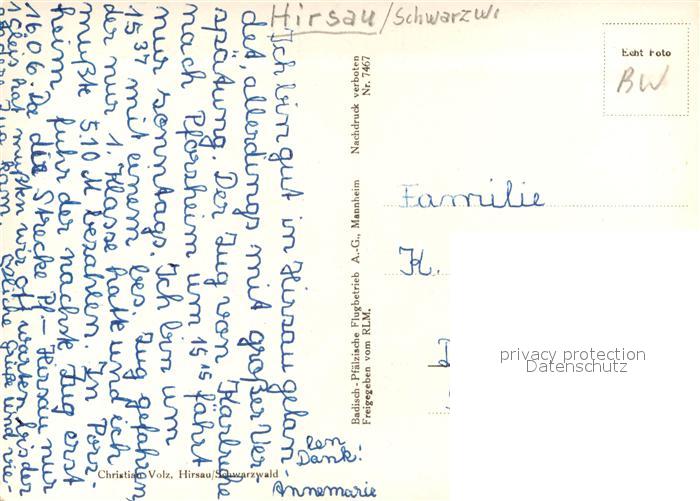 Hirsau/Schwarzw
Echt Foto
BW
Ich bin gut in Hirsau gelan-
det, allerdings mit großer Ver-
spätung. Der Zug von Karlsruhe
nach Pforzheim um 15 15 fährt
nur sonntags. Ich bin um
15 37 mit einem bes. Zug gefahren
der nur 1. Klasse hatte und ich
mußte 5.10 M bezahlen. In Pforz-
heim fuhr der nächste Zug erst
16 06. Da die Strecke Pf.-Hirsau nur
1 Gleis hat mußten wir oft warten bis der
andere Zug kam. Herzliche Grüße und vie-
len
Dank!
Annemarie
Christian Volz, Hirsau/Schwarzwald
Badisch-Pfälzische Flugbetrieb A.-G., Mannheim Nachdruck verboten
Freigegeben vom RLM. Nr. 7467
Familie
K.
privacy protection
Datenschutz